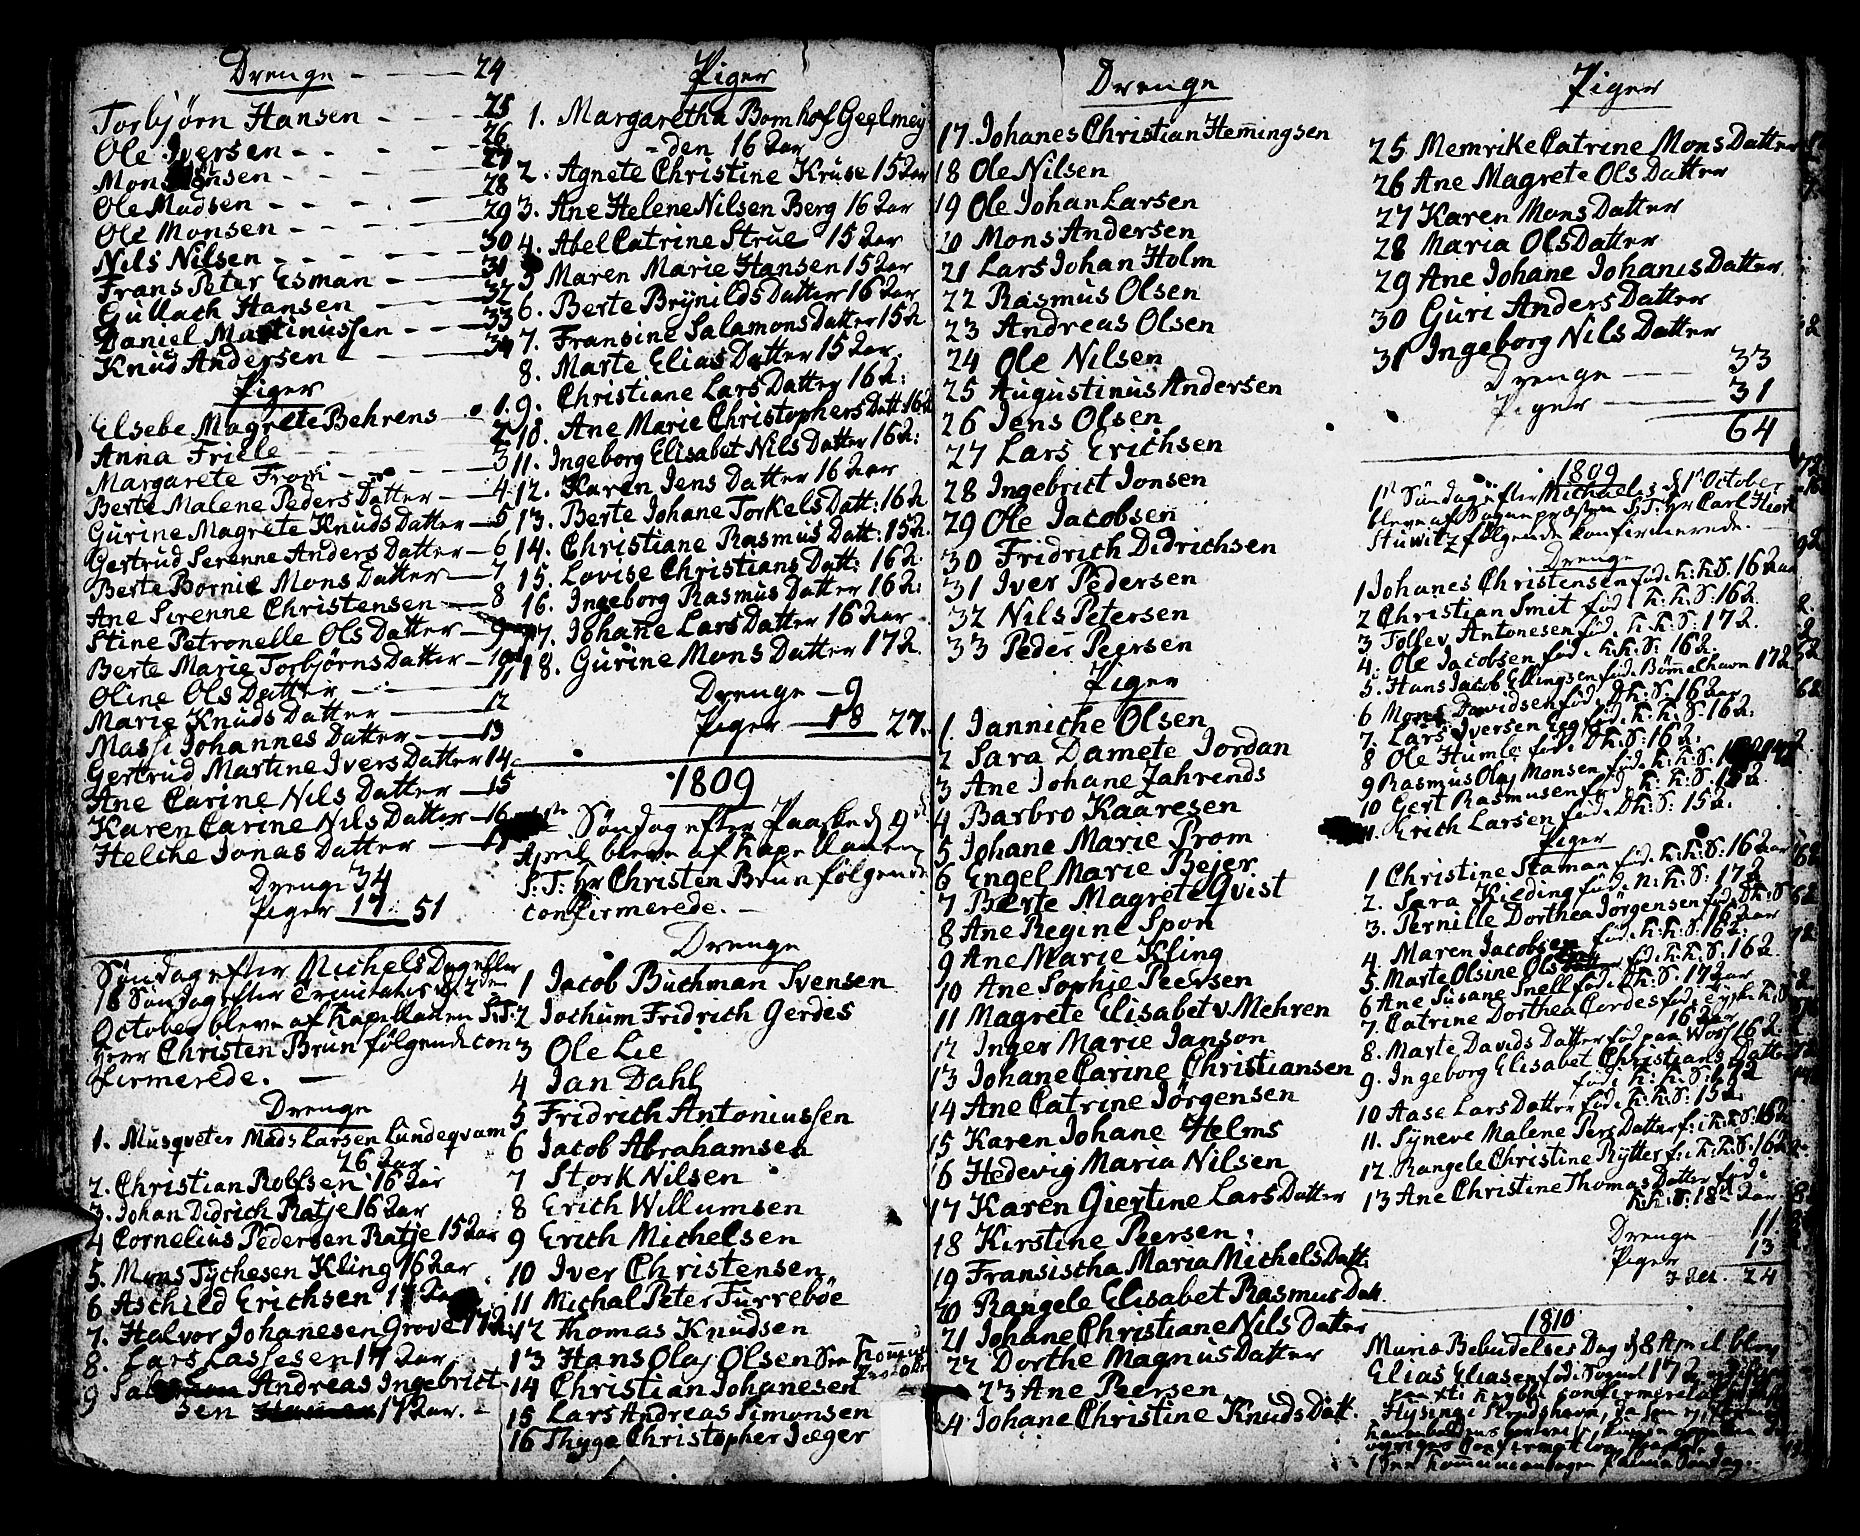 Drenge - - - 24
Torbjørn Hansen - - - 25
Ole Iversen - - - 26
Mons Hansen - - - 27
Ole Madsen - - - 28
Ole Monsen - - - 29
Nils Nilsen - - - 30
Frans Peter Esman - - - 31
Gullach Hansen - - - 32
Daniel Martinussen - - - 33
Knud Andersen - - - 34
Piger
Elsebe Magrete Behrens - 1.
Anna Friele - - - 2
Margarete From - - - 3
Berte Malene Peders Datter - 4
Gurine Magrete Knuds Datter - 5
Gertrud Serenne Anders Datter - 6
Berte Bornie Mons Datter - 7
Ane Serenne Christensen - 8
Stine Petronelle Ols Datter - 9
Berte Marie Torbjørns Datter - 10
Oline Ols Datter - - - 11
Marie Knuds Datter - - - 12
Massi Johannes Datter - - - 13
Gertrud Martine Ivers Datter 14
Ane Carine Nils Datter - 15
Karen Carine Nils Datter - 16
Helche Jonas Datter - 17
Drenge 34
Piger 17. 51
Søndag efter Michels Dag eller
16 Søndag efter Trinitatis d. 2den
October bleve af Kapellanen S.T.
Herr Christen Brun følgende con
firmerede. -
Drenge
1. Musqveter Mads Larsen Lundeqvam
26 Aar
2. Christian Rolfsen 16 Aar
3. Johan Didrich Ratje 16 Aar
4 Cornelius Pedersen Ratje 15 Aar
5. Mons Tÿchesen Kling 16 Aar
6 Aschild Erichsen 17 Aar
7. Halvor Johanesen Grove 17 A:
8. Lars Lassesen 17 Aar
9 Salomon Andreas Ingebrict
sen 17 Aar. -
Piger
1. Margaretha Bomhof Geelmeÿ
den 16 Aar
2. Agnete Christine Kruse 15 Aar
3. Ane Helene Nilsen Berg 16 Aar
4. Abel Catrine Strue 15 Aar
5 Maren Marie Hansen 15 Aar
6. Berte Brÿnilds Datter 16 Aar
7. Fransine Salamons Datter 15 A
8. Marte Elias Datter 15 Aar
9. Christiane Lars Datter 16 A:
10. Ane Marie Christophers Datt: 16 A
11. Ingeborg Elisabet Nils Datter 16 A:
12. Karen Jens Datter 16 Aar
13. Berte Johane Torkels Datt: 16 A
14. Christiane Rasmus Datt: 15 A.
15. Lovise Christians Datt: 16 A:
16. Ingeborg Rasmus Datter 16 A:
17. Johane Lars Datter 16 Aar
18. Gurine Mons Datter 17 A
Drenge - 9
Piger - 18 27.
1809
Søndag efter Paaske d. 9d
April bleve af Kapellanen
S.T: Hr Christen Brun følgende
confirmerede. -
Drenge
1 Jacob Buchman Svensen
2 Jochum Fridrich Gerdes
3 Ole Lie
4 Jan Dahl
5 Fridrich Antoniussen
6 Jacob Abrahamsen
7 Stork Nilsen
8 Erich Willumsen
9 Erich Michelsen
10 Iver Christensen
11 Michal Peter Furreböe
12 Thomas Knudsen
13 Hans Olaj Olsen
14 Christian Johanesen
15 Lars Andreas Simonsen
16 Thyge Christopher Jæger
Drenge
17. Johanes Christian Hem̅ingsen
18 Ole Nilsen
19 Ole Johan Larsen
20 Mons Andersen
21 Lars Johan Holm
22 Rasmus Olsen
23 Andreas Olsen
24 Ole Nilsen
25 Augustinus Andersen
26 Jens Olsen
27 Lars Erichsen
28 Ingebrict Jonsen
29 Ole Jacobsen
30 Fridrich Didrichsen
31 Iver Pedersen
32 Nils Petersen
33 Peder Peersen
Piger
1. Janniche Olsen
2 Sara Damete Jordan
3 Ane Johane Zahrends
4 Barbro Kaaresen
5 Johane Marie Prom
6 Engel Marie Bejer
7 Berte Magrete Qvist
8 Ane Regine Spon
9 Ane Marie Kling
10 Ane Sophie Peersen
11 Magrete Elisabet v. Mehren
12 Inger Marie Janson
13 Johane Carine Christiansen
14 Ane Catrine Jörgensen
15 Karen Johane Helms
16 Hedevig Maria Nilsen
17 Karen Giertine Lars Datter
18 Kirstine Peersen:
19 Fransistha Maria Michels Datt.
20 Rangele Elisabet Rasmus Datt.
21 Johane Christiane Nils Datter
22 Dorthe Magnus Datter
23 Ane Peersen
24 Johane Christine Knuds Datt.
Piger
25 Memrike Catrine Mons Datter
26 Ane Magrete Ols Datter
27 Karen Mons Datter
28 Maria Ols Datter
29 Ane Johane Johanes Datter
30 Guri Anders Datter
31 Ingeborg Nils Datter
Drenge - - 33
Piger - - - 31
64
1809
1st Søndag efter Michaelis d. 1st October
bleve af Sognepræsten S.T: Hr Carl Hiort
Stuwitz følgende konfirmerede. -
Drenge
1 Johanes Christensen föd. K: K: S. 16 Aar
2 Christian Smit föd. K: K: S: 16 A.
3 Tollev Antonesen föd. K: K: S: 17 A.
4. Ole Jacobsen föd. K: K: S: 16 A.
5. Hans Jacob Ellingsen föd. Bömmelhavn 17 A
6 Mons Davidsen föd. D: K: S. 16 Aar
7 Lars Iversen Eeg föd. K: K: S: 16 A:
8 Ole Humle föd. D: K: S: 16 A:
9 Rasmus Olaj Monsen föd. K: K: S:
10 Gert Rasmusen föd. K: K: S: 15 A
11. Erich Larsen föd. D: K: S: 15 A.
Piger
1 Christine Staman föd. K: K: S: 16 Aar
2. Sara Kielding föd. N: K: S: 17 A
3. Pernille Dorthea Jörgensen föd. D: K: S
16 Aar
4. Maren Jacobsen föd. K: K: S: 16 A:
5. Marte Olsine Ols föd. K: K: S: 16 A
6 Ane Susane Snell föd. D: K: S: 17 Aar
7. Catrine Dorthea Cordes föd. Tÿsk: K: S:
16 Aar
8. Marte Davids Datter föd paa Wors 16 A.
9. Ingeborg Elisabet Christians Datter
föd. K: K: S: 17 A
10 Aase Lars Datter föd. K: K: S: 15 A.
11. Sÿneve Malene Pers Datter f: K: K: S: 16 A
12. Rangele Christine Rÿtter f: K: K: S: 16 A
13 Ane Christine Thomas Datter föd i
K: K: S: 18 Aar
Drenge - 11
Piger 13
24
1810
Mariæ Bebudelses Dag d. 8 April blev
Elias Eliasen föd. Sogne 17 A